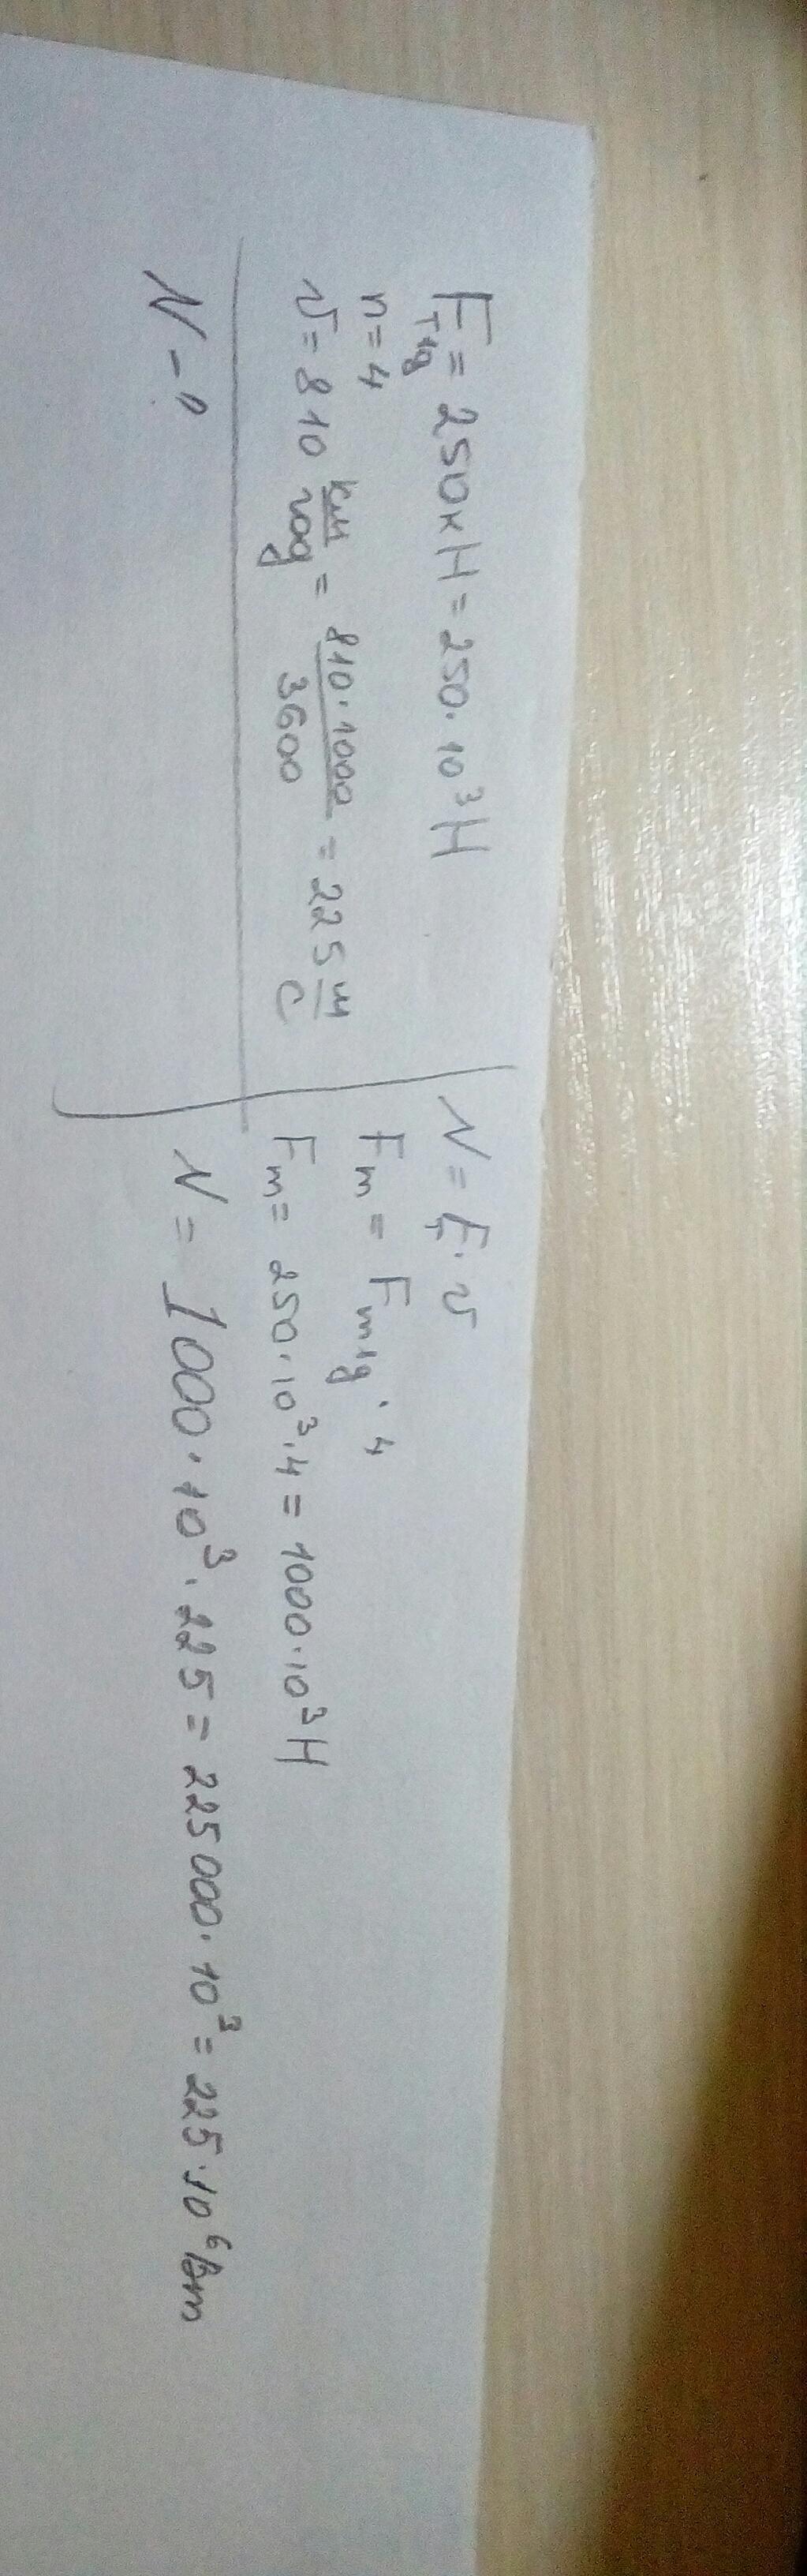 Fт1g = 250кН = 250·10³Н
n = 4
υ = 810 км/год = 810·1000/3600 = 225 м/с
N - ?
N = Fт·υ
Fm = Fm1g · 4
Fm = 250·10³·4 = 1000·10³Н
N = 1000·10³·225 = 225000·10³ = 225·10⁶Вт